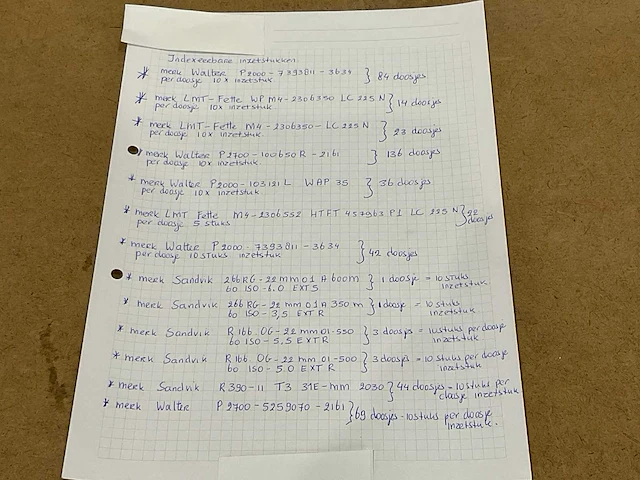 Indexeerbare inzetstukken.
* merk Walter P2000-7393811-3634 } 84 doosjes
per doosje 10x inzetstuk
* merk LMT-Fette WP M4-2306350 LC 225 N } 14 doosjes
per doosje 10x inzetstuk
* merk LMT-Fette M4-2306350-LC 225 N } 23 doosjes
per doosje 10x inzetstuk.
* merk Walter P2700-100650 R-2161 } 136 doosjes
per doosje 10x inzetstuk.
* merk Walter P2000-103121 L WAP 35 } 36 doosjes
per doosje 10x inzetstuk.
* merk LMT Fette M4-2306552 HTFT 457963 P1 LC 225 N } doosjes
per doosje 5 stuks
* merk Walter P2000-7393811-3634 } 42 doosjes
per doosje 10 stuks inzetstuk
* merk Sandvik 266 RG-22 mm 01 A 600m } 1 doosje = 10 stuks
60 ISO-6.0 EXT S inzetstuk.
* merk Sandvik 266 RG-22 mm 01 A 350 m } 1 doosje = 10 stuks
60 ISO-3,5 EXT R inzetstuk.
* merk Sandvik R 166. OG-22 mm 01-550 } 3 doosjes = 10 stuks per doosje
60 ISO-5.5 EXT R inzetstuk
* merk Sandvik R 166. OG-22 mm 01-500 } 3 doosjes = 10 stuks per doosje
60 ISO-5.0 EXT R inzetstuk
* merk Sandvik R 390-11 T3 31E-mm 2030 } 44 doosjes = 10 stuks per
doosje inzetstuk
* merk Walter P 2700-5259070-2161 } 69 doosjes - 10 stuks per doosje
inzetstuk.